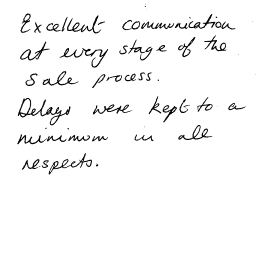 Excellent communication
at every stage of the
sale process.
Delays were kept to a
minimum in all
respects.